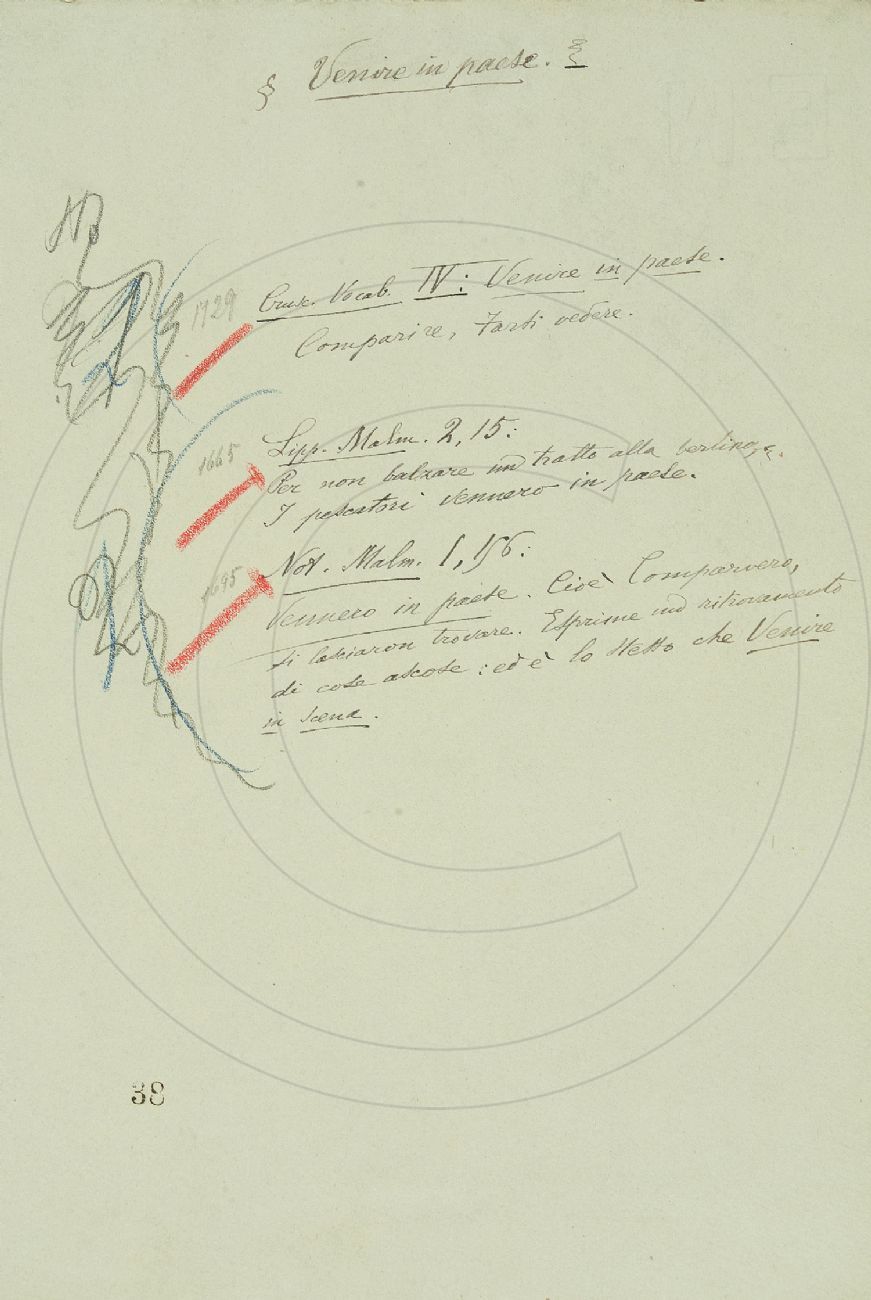 § Venire in paese. §
1729 Crus. Vocab. IV: Venire in paese.
Comparire, Farsi vedere.
1665 Lipp. Malm. 2, 15:
Per non balzare un tratto alla berlina,
I pescatori vennero in paese.
1695 Not. Malm. 1, 156:
Vennero in paese. Cioè Comparvero,
si lasciaron trovare. Esprime un ritrovamento
di cose ascose: ed è lo stesso che Venire
in scena.
38